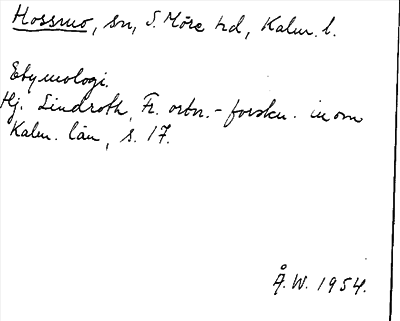 Hossmo, sn, S. Möre hd, Kalm. l.
Etymologi.
Hj. Lindroth, Fr. ortn.-forskn. inom
Kalm. län, s. 17.
Å. W. 1954.